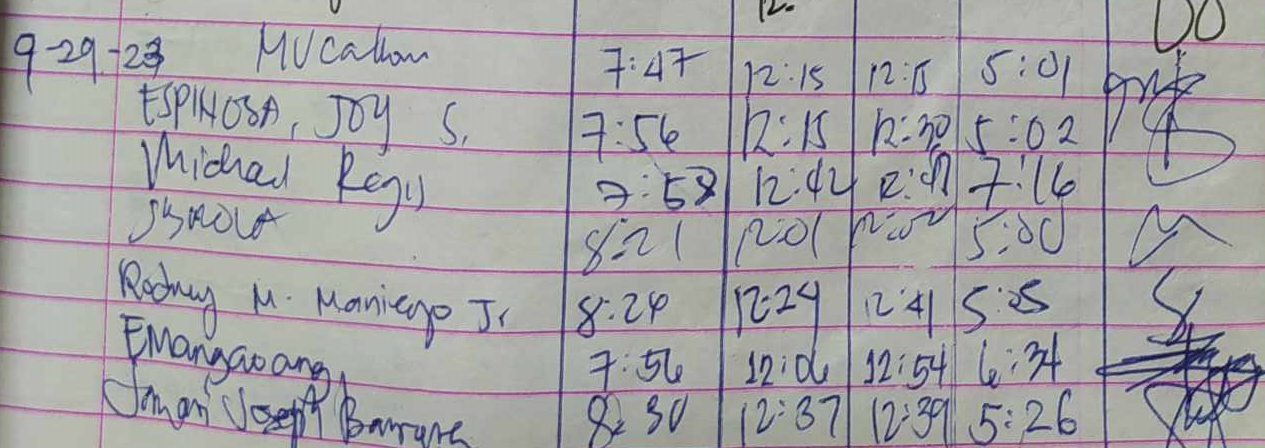 12.
9-29-23 MVCallom 7:47 12:15 12:15 5:01
ESPINOSA, JOY S. 7:56 12:15 12:30 5:02
Michael Regis 7:58 12:42 7:16
8:21 12:01 5:00
Rodney M. Maniego Jr 8:24 12:24 12:41 5:05
EMangaoang, 7:56 12:06 12:54 6:34
Joseph 8:30 12:37 12:39 5:26